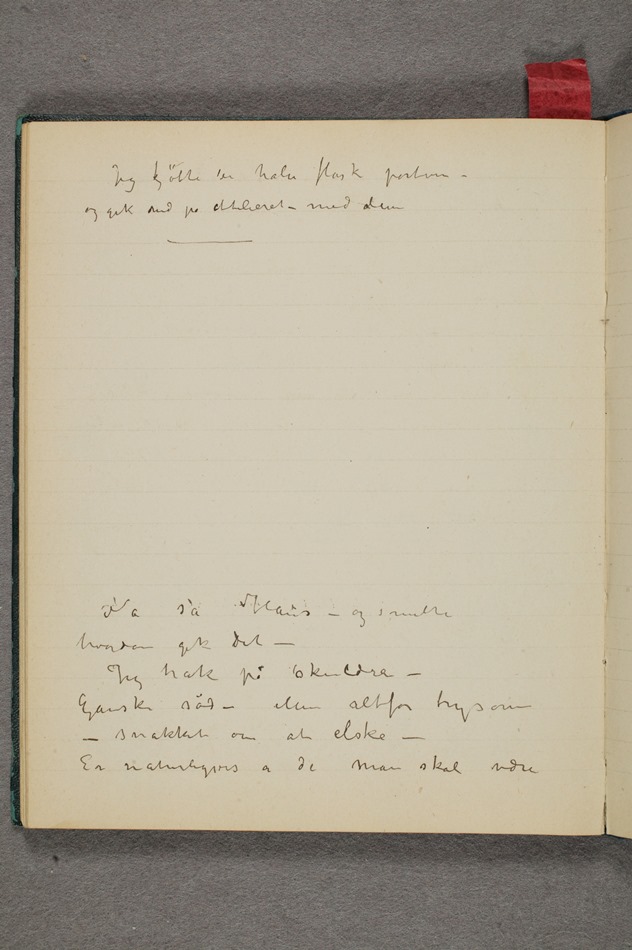 Jeg kjöbte en halv flask portvin –
og gik ned på atelieret – med dem
Na så Hans – og smilte
hvordan gik det –
Jeg trak på skuldre –
Ganske söd – men altfor tugsom
– snakket om at elske –
Er naturligvis a de man skal være